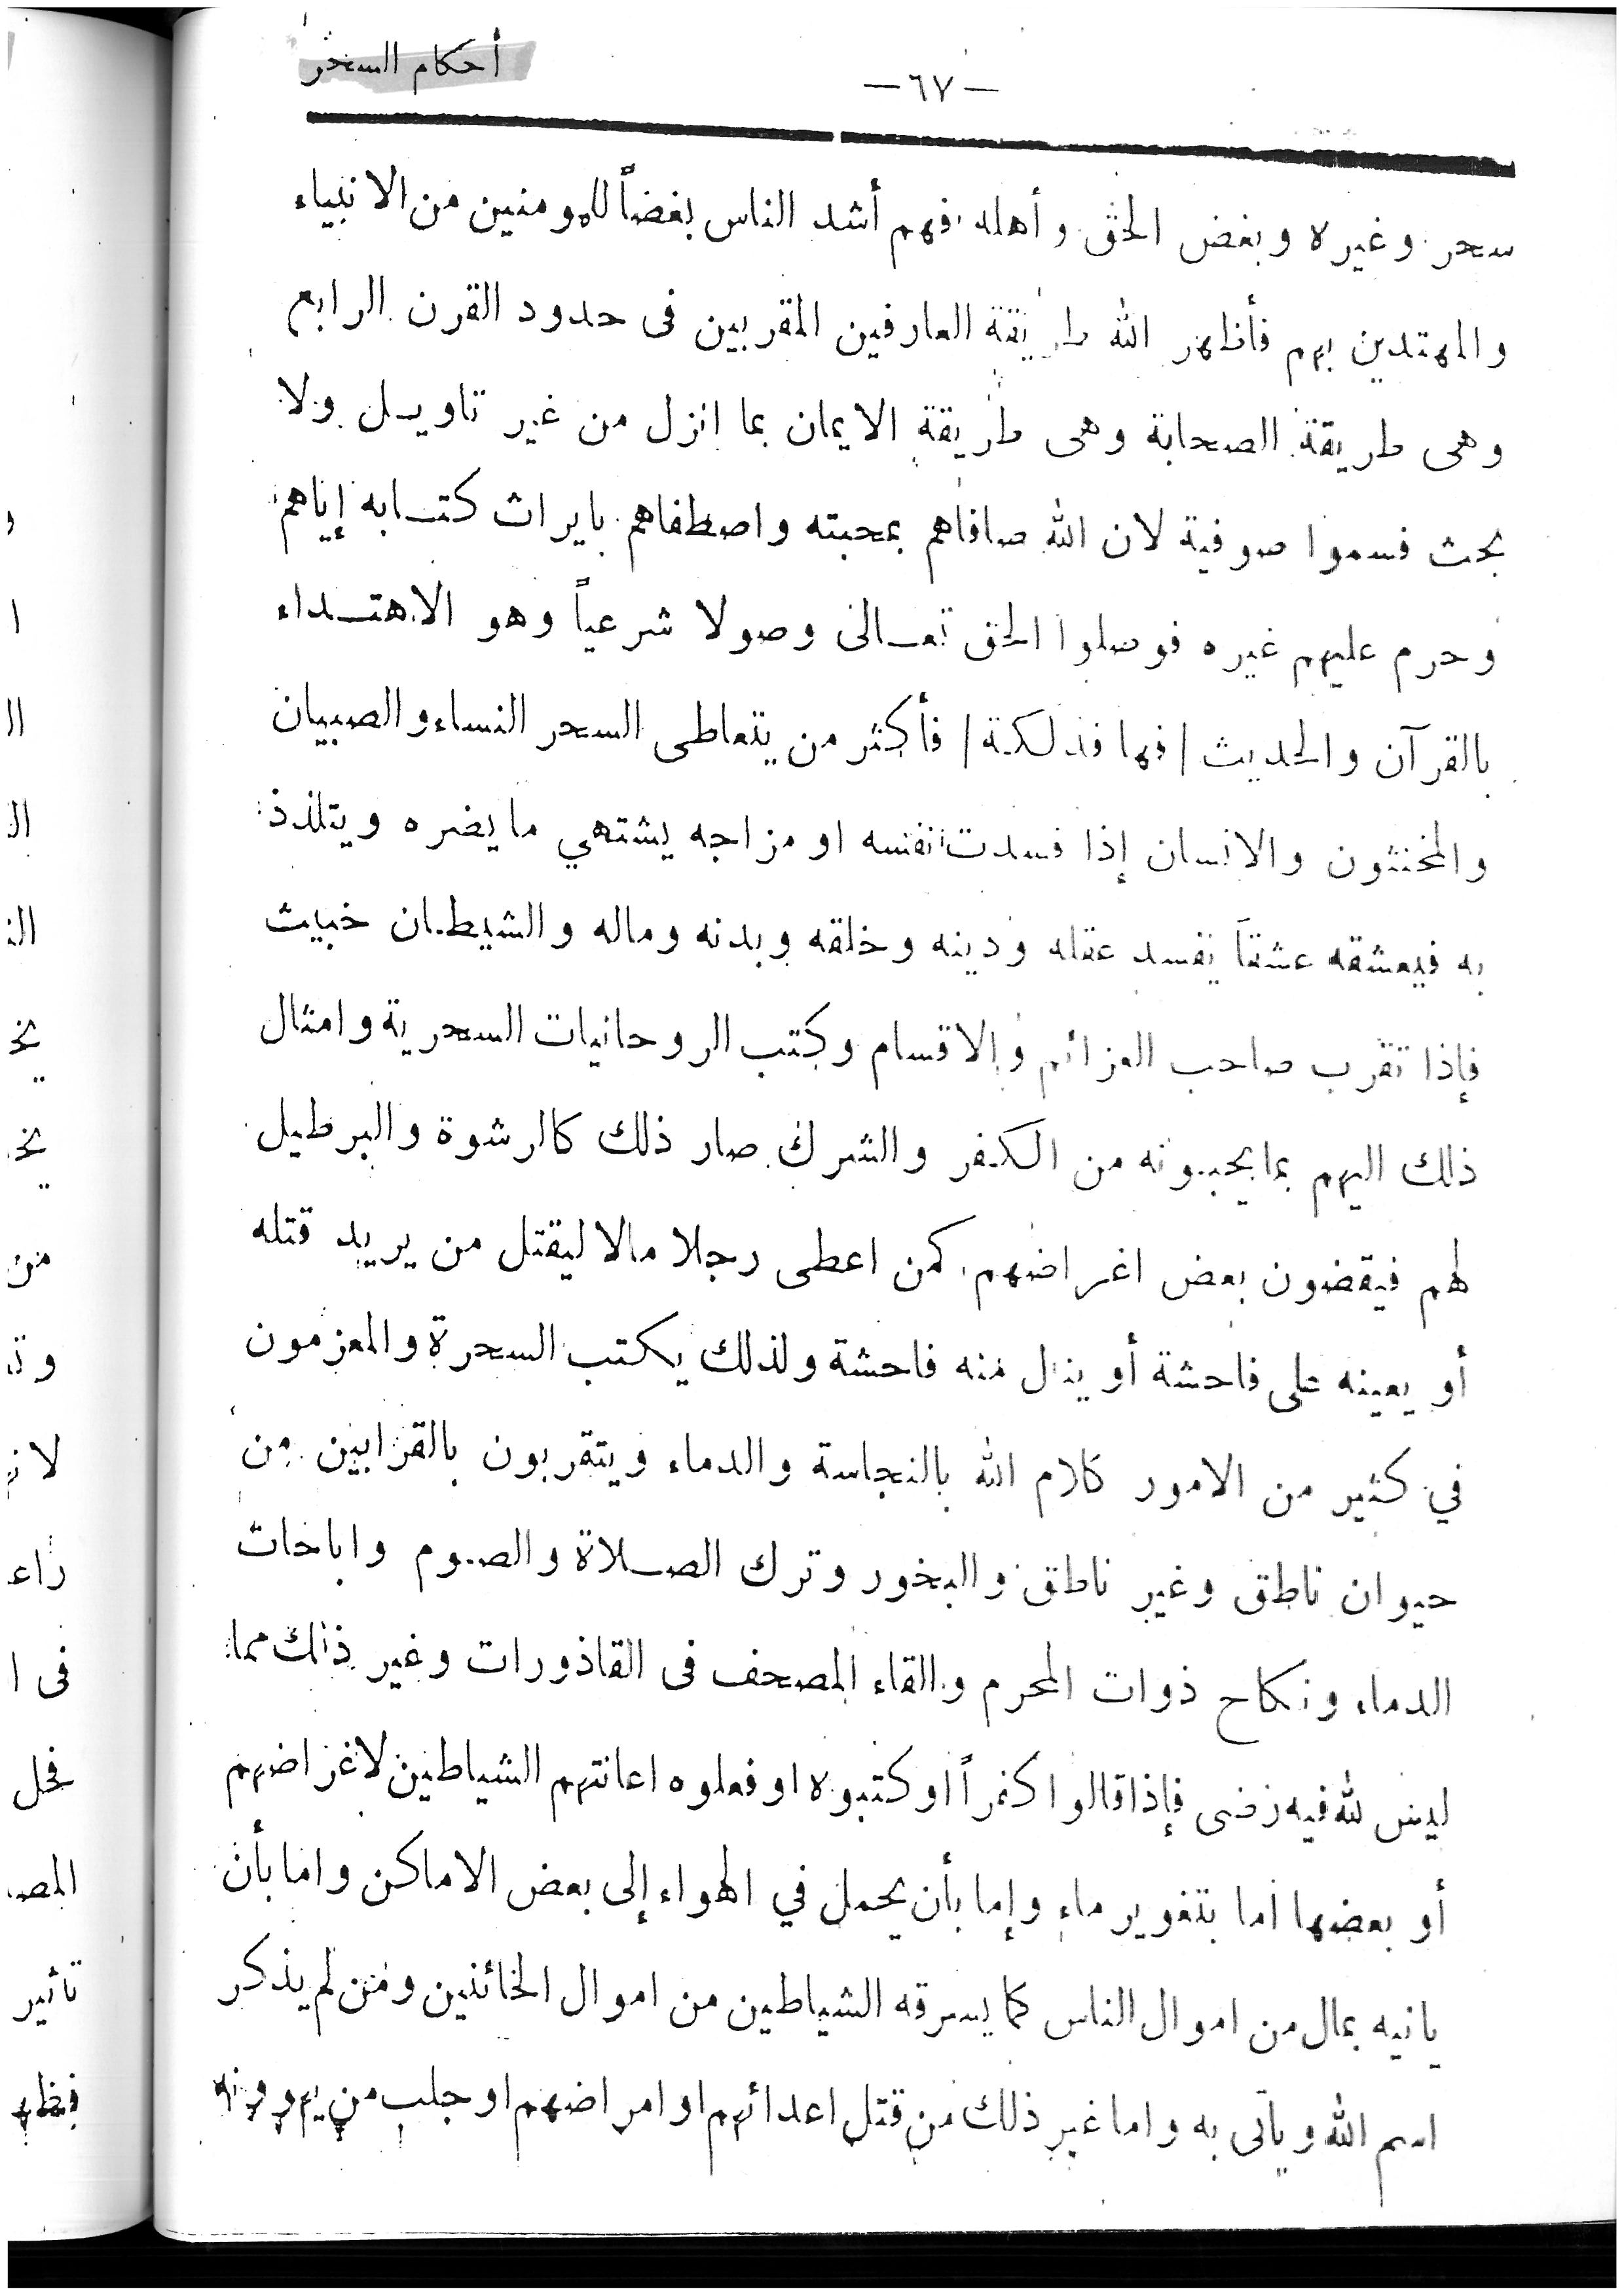 أحكام السحر
— ٦٧ —
سحر وغيره وبغض الحق وأهله فهم أشد الناس بغضاً للمومنين من الانبياء
والمهتدين بهم فأظهر الله طريقة العارفين المقربين فى حدود القرن الرابع
وهى طريقة الصحابة وهى طريقة الايمان بما انزل من غير تاويل ولا
بحث فسموا صوفية لان الله صافاهم بمحبته واصطفاهم بايراث كتابه إياهم
وحرم عليهم غيره فوصلوا الحق تعالى وصولا شرعياً وهو الاهتداء
بالقرآن والحديث / فها فذلكة / فأكثر من يتعاطى السحر النساء والصبيان
والمخنثون والانسان إذا فسدت نفسه او مزاجه يشتهي ما يضره ويتلذذ
به فيعشقه عشقاً يفسد عقله ودينه وخلقه وبدنه وماله والشيطان خبيث
فإذا تقرب صاحب العزائم والاقسام وكتب الروحانيات السحرية وامثال
ذلك اليهم بما يحبونه من الكفر والشرك صار ذلك كالرشوة والبرطيل
لهم فيقضون بعض اغراضهم كمن اعطى رجلا مالا ليقتل من يريد قتله
أو يعينه على فاحشة أو ينال منه فاحشة ولذلك يكتب السحرة والمعزمون
في كثير من الامور كلام الله بالنجاسة والدماء ويتقربون بالقرابين من
حيوان ناطق وغير ناطق والبخور وترك الصلاة والصوم واباحات
الدماء ونكاح ذوات المحرم والقاء المصحف فى القاذورات وغير ذلك مما
ليس لله فيه رضى فإذا قالوا كفراً او كتبوه او فعلوه اعانتهم الشياطين لاغراضهم
أو بعضها اما بتغوير ماء وإما بأن يحمل في الهواء إلى بعض الاماكن واما بأن
يانيه بمال من اموال الناس كما يسرقه الشياطين من اموال الخائنين ومن لم يذكر
اسم الله وياتى به واما غير ذلك من قتل اعدائهم او امراضهم او جلب من